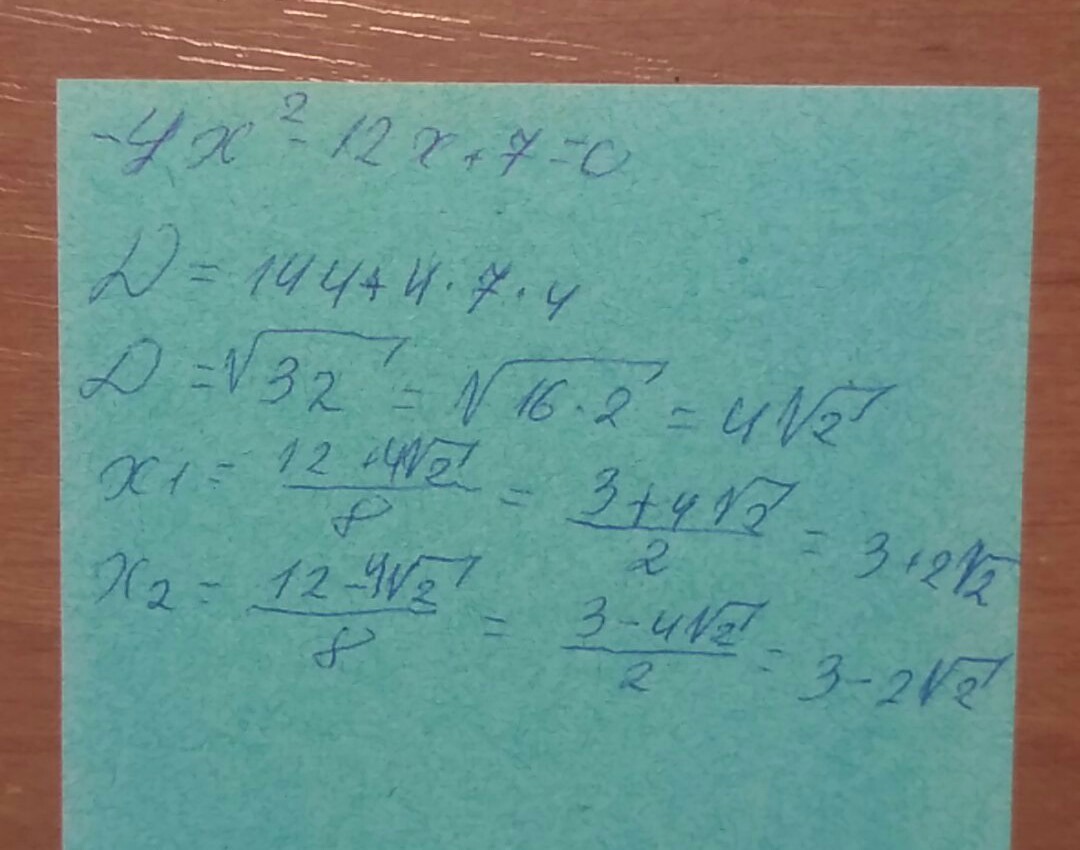 -4x² - 12x + 7 = 0
D = 144 + 4 · 7 · 4
D = √32 = √16 · 2 = 4√2
x1 = 12 + 4√2 / 8 = 3 + 4√2 / 2 = 3 + 2√2
x2 = 12 - 4√2 / 8 = 3 - 4√2 / 2 = 3 - 2√2